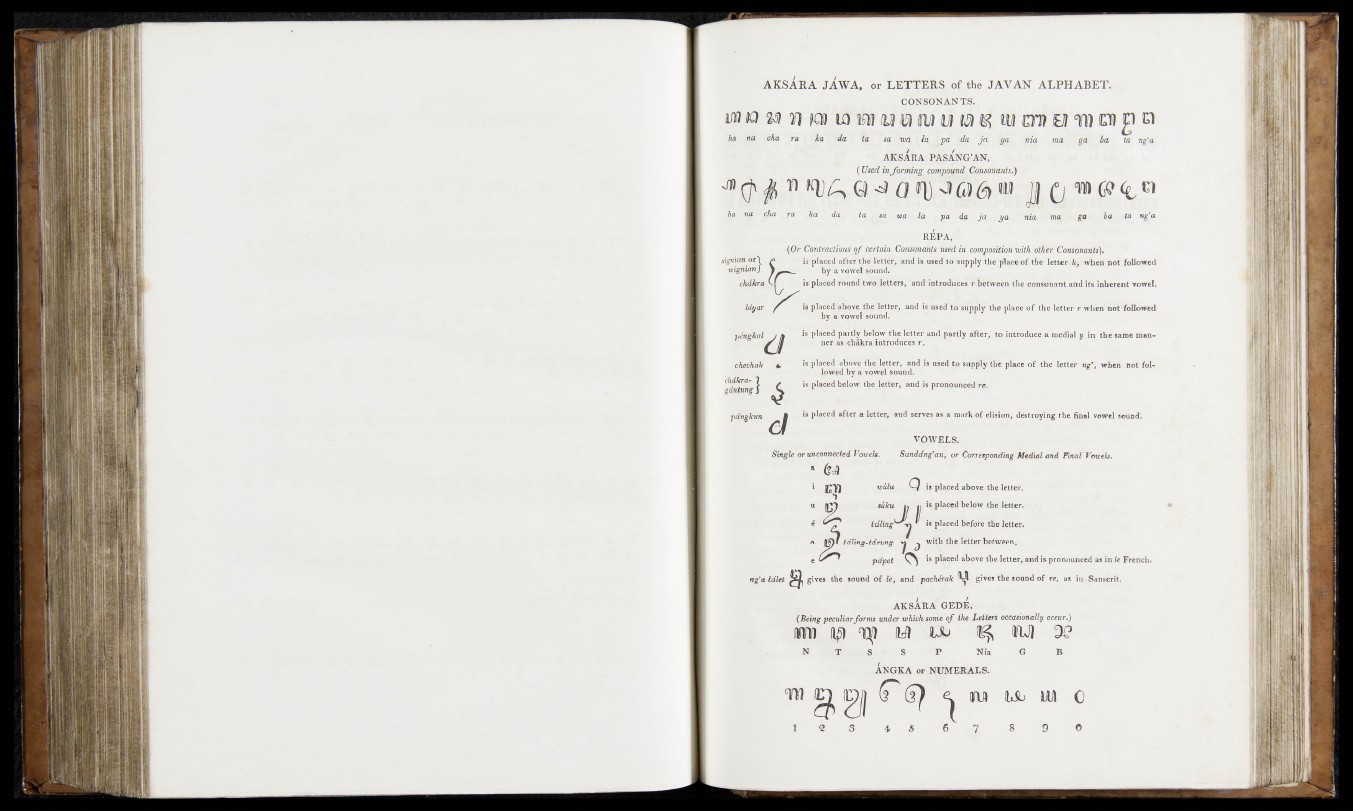 AKSÁRA JÁWA, or LETTERS of the JAVAN ALPHABET.
CONSONANTS.
ꦲ ꦤ ꦕ ꦫ ꦏ ꦢ ꦠ ꦱ ꦮ ꦭ ꦥ ꦝ ꦗ ꦪ ꦚ ꦩ ꦒ ꦧ ꦛ ꦔ
ha na cha ra ka da ta sa wa la pa da ja ya nia ma ga ba ta ng'a
AKSÁRA PASÁNG'AN,
(Used in forming compound Consonants.)
ha na cha ra ka da ta sa wa la pa da ja ya nia ma ga ba ta ng'a
RÉPA,
(Or Contractions of certain Consonants used in composition with other Consonants).
signian or wignian } is placed after the letter, and is used to supply the place of the letter h, when not followed
by a vowel sound.
chákra is placed round two letters, and introduces r between the consonant and its inherent vowel.
láyar is placed above the letter, and is used to supply the place of the letter r when not followed
by a vowel sound.
péngkal is placed partly below the letter and partly after, to introduce a medial y in the same man-
ner as chákra introduces r.
chechak is placed above the letter, and is used to supply the place of the letter ng', when not fol-
lowed by a vowel sound.
chákra-gántung } is placed below the letter, and is pronounced re.
pángkun is placed after a letter, and serves as a mark of elision, destroying the final vowel sound.
VOWELS.
Single or unconnected Vowels. Sandáng'an, or Corresponding Medial and Final Vowels.
a
i wúlu is placed above the letter.
u súku is placed below the letter.
é táling is placed before the letter.
o táling-tárung with the letter between.
e pápet is placed above the letter, and is pronounced as in le French.
ng'a lálet gives the sound of le, and pachérak gives the sound of re, as in Sanscrit.
AKSÁRA GEDÉ,
(Being peculiar forms under which some of the Letters occasionally occur.)
N T S S P Nia G B
ÁNGKA or NUMERALS.
1 2 3 4 5 6 7 8 9 0